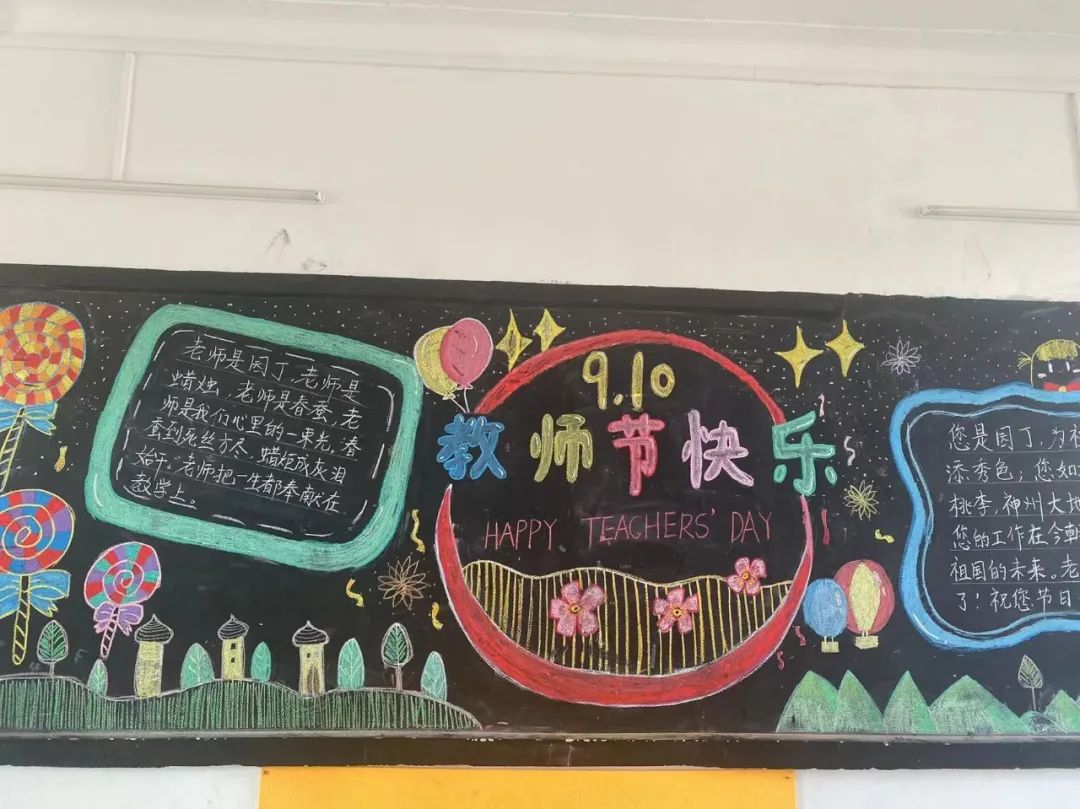 老师是园丁,老师是
蜡烛,老师是春蚕,老
师是我们心里的一束光。春
蚕到死丝方尽,蜡炬成灰泪
始干。老师把一生都奉献在
教学上。
9.10
教师节快乐
HAPPY TEACHERS' DAY
您是园丁,为祖
添秀色;您如
桃李,神州大地
您的工作在今朝
祖国的未来。老
了!祝您节日